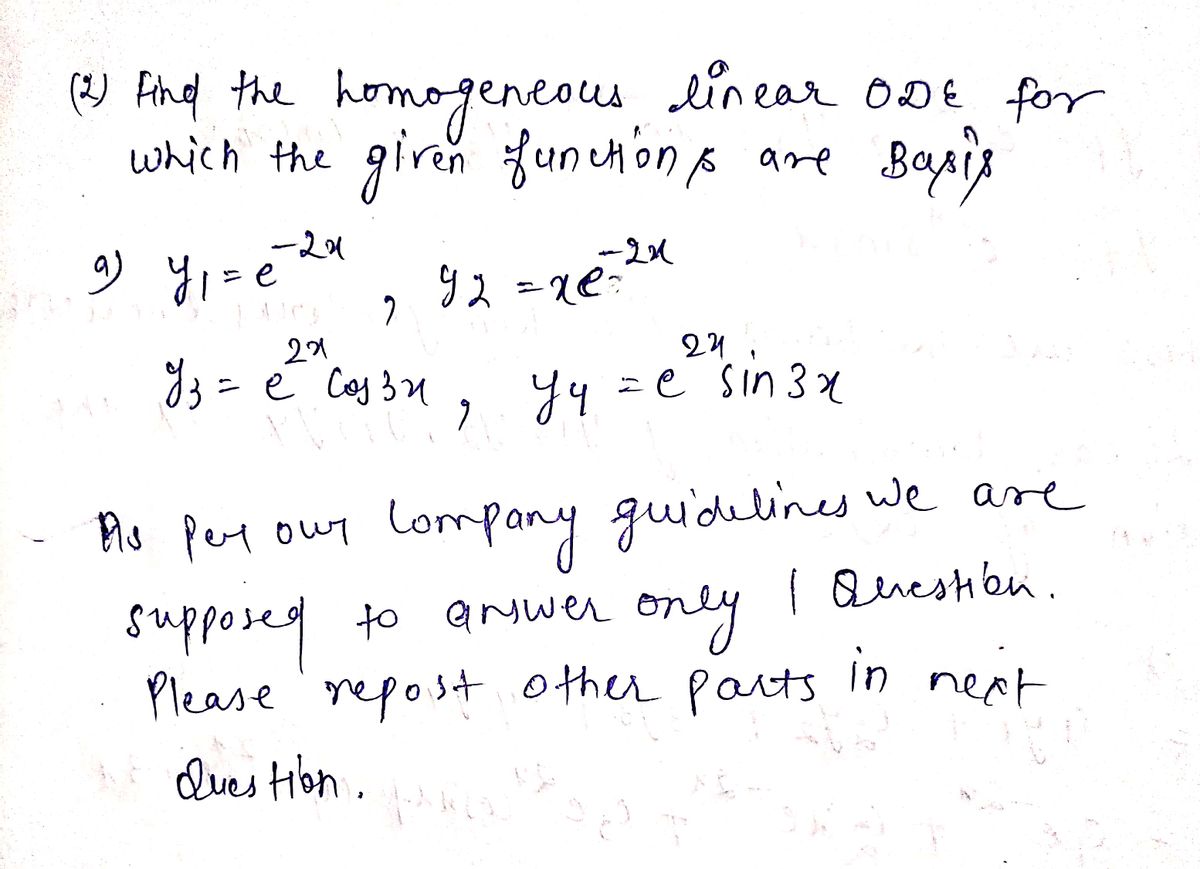 (2) Find the homogeneous linear ODE for
which the given functions are Basis
a) y1 = e^-2x , y2 = xe^-2x
y3 = e^2x Cos 3x , y4 = e^2x sin 3x
- As per our Company guidelines we are
supposed to answer only 1 Question.
Please repost other parts in next
Question.